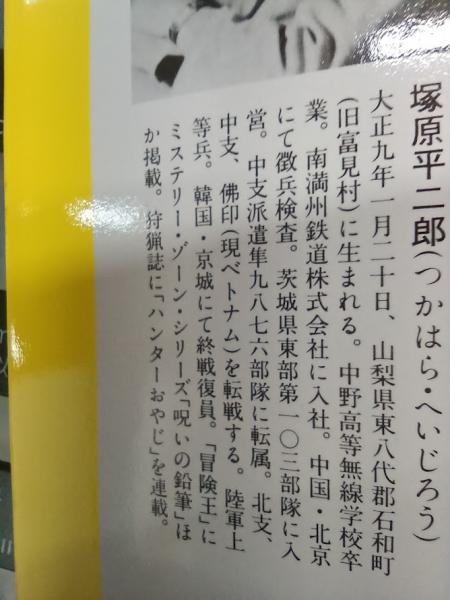 塚原平二郎(つかはら・へいじろう)
大正九年一月二十日、山梨県東八代郡石和町
(旧富見村)に生まれる。中野高等無線学校卒
業。南満州鉄道株式会社に入社。中国・北京
にて徴兵検査。茨城県東部第一〇三部隊に入
営。中支派遣隼九八七六部隊に転属。北支、
中支、佛印(現ベトナム)を転戦する。陸軍上
等兵。韓国・京城にて終戦復員。「冒険王」に
ミステリー・ゾーン・シリーズ「呪いの鉛筆」ほ
か掲載。狩猟誌に「ハンターおやじ」を連載。